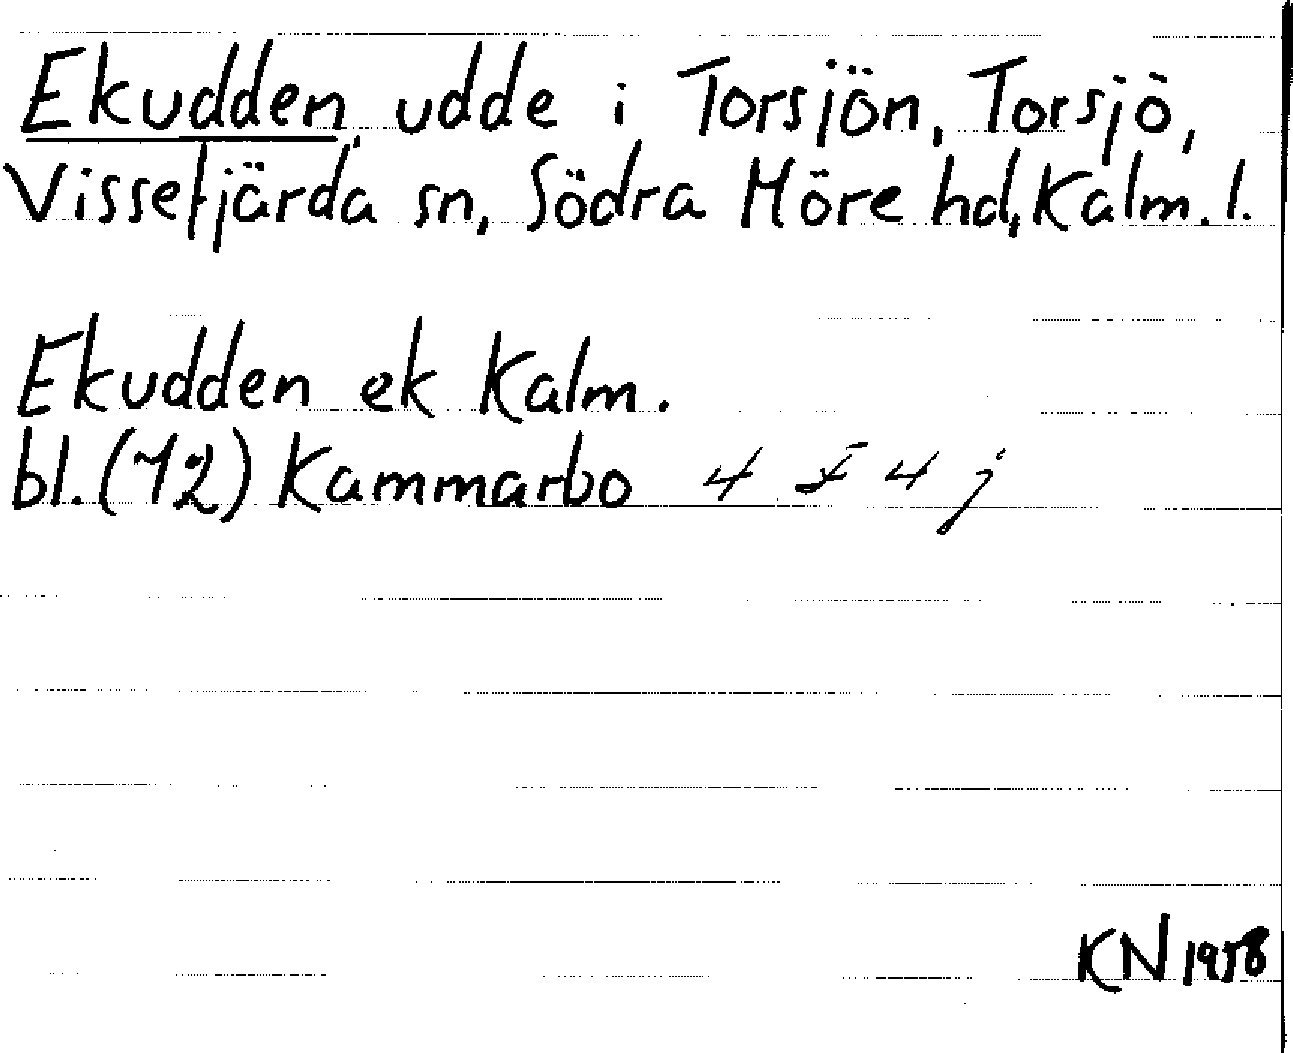 Ekudden, udde i Torsjön, Torsjö,
Vissefjärda sn, Södra Möre hd, Kalm. l.
Ekudden ek Kalm.
bl. (12) Kammarbo 4 F 4 j
KN 1958